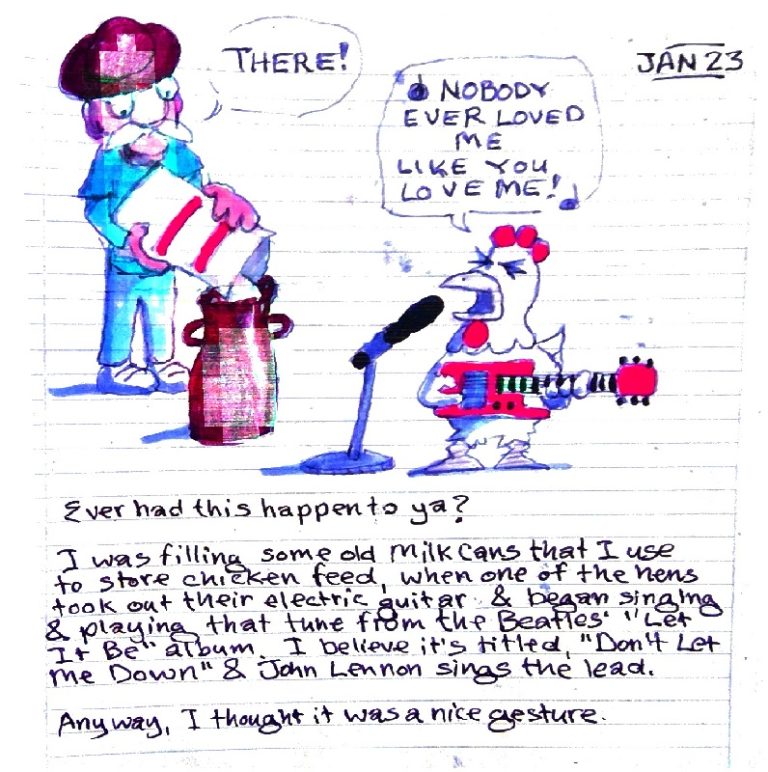 THERE!
JAN 23
♪ NOBODY
EVER LOVED
ME
LIKE YOU
LOVE ME! ♪
Ever had this happen to ya?
I was filling some old milk cans that I use
to store chicken feed, when one of the hens
took out their electric guitar & began singing
& playing that tune from the Beatles' "Let
It Be" album. I believe it's titled, "Don't Let
Me Down" & John Lennon sings the lead.
Anyway, I thought it was a nice gesture.